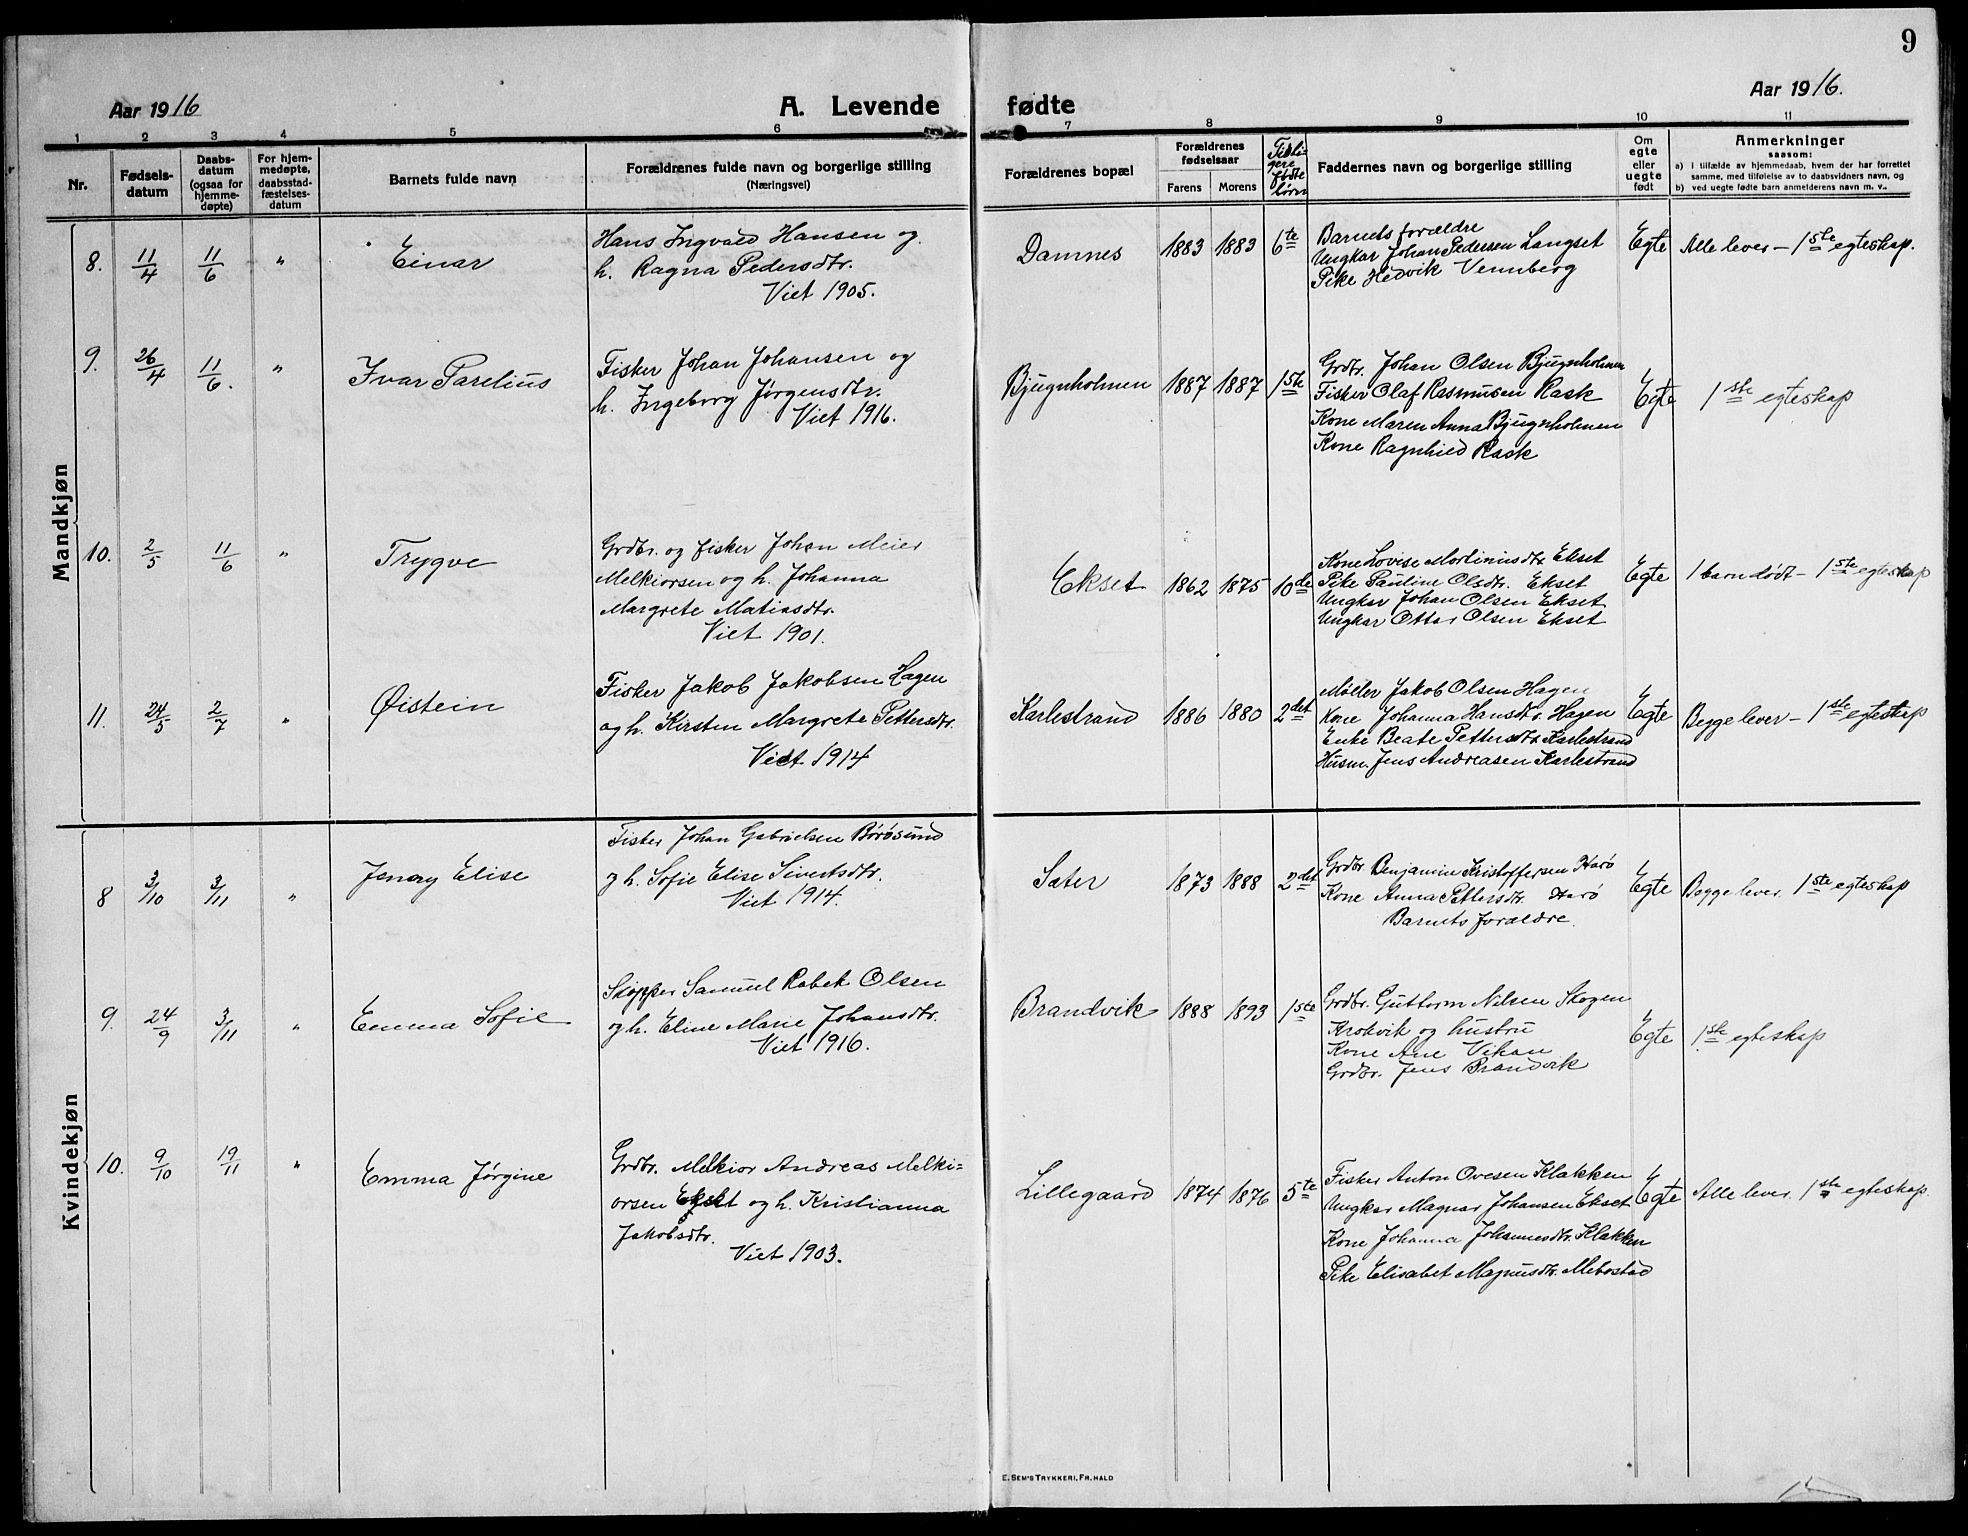 9
Aar 1916
A. Levende fødte
Aar 1916.
1 2 3 4 5 6 7 8 9 10 11
Nr.
Fødsels-
datum
Daabs-
datum
(ogsaa for
hjemme-
døpte)
For hjem-
medøpte,
daabsstad-
fæstelses-
datum
Barnets fulde navn
Forældrenes fulde navn og borgerlige stilling
(Næringsvei)
Forældrenes bopæl
Forældrenes
fødselsaar
Farens Morens
Tidli-
gere
fødte
børn
Faddernes navn og borgerlige stilling
Om
egte
eller
uegte
født
Anmerkninger
saasom:
a) i tilfælde av hjemmedaab, hvem der har forrettet
samme, med tilføielse av to daabsvidners navn, og
b) ved uegte fødte barn anmelderens navn m. v..
Mandkjøn
8. 11/4 11/6 " Einar
Hans Ingvald Hansen og
h. Ragna Pedersdtr.
Viet 1905.
Damnes 1883 1883 6te
Barnets forældre
Ungkar Johan Pedersen Langset
Pike Hedvik Vennberg
Egte Alle lever – 1ste egteskap.
9. 26/4 11/6. " Ivar Parelius
Fisker Johan Johansen og
h. Ingeborg Jørgensdtr.
Viet 1916.
Bjugnholmen 1887 1887 1ste
Grdbr. Johan Olsen Bjugnholmen
Fisker Olaf Rasmusen Rask
Kone Maren Anna Bjugnholmen
Kone Ragnhild Rask
Egte 1ste egteskap
10. 2/5 11/6 " Trygve
Grdbr. og fisker Johan Meier
Melkiorsen og h. Johanna
Margrete Matiasdtr.
Viet 1901.
Ekset 1862 1875 10de
Kone Lovise Martinusdtr. Ekset
Pike Pauline Olsdtr. Ekset
Ungkar Johan Olsen Ekset
Ungkar Ottar Olsen Ekset
Egte 1 barn dødt – 1ste egteskap
11. 24/5 2/7 " Øistein
Fisker Jakob Jakobsen Hagen
og h. Kirsten Margrete Pettersdtr.
Viet 1914
Karlestrand 1886 1880 2det
Møller Jakob Olsen Hagen
Kone Johanna Hansdtr. Hagen
Enke Beate Pettersdtr. Karlestrand
Husm. Jens Andreasen Karlestrand
Egte Begge lever – 1ste egteskap
Kvindekjøn
8 3/10 3/11 " Jenny Elise
Fisker Johan Gabrielsen Børøsund
og h. Sofie Elise Sivertsdtr.
Viet 1914.
Sater 1873 1888 2det
Grdbr. Benjamin Kristoffersen Harø
Kone Anna Pettersdtr. Harø
Barnets forældre.
Egte Begge lever. 1ste egteskap
9. 24/9 3/11 " Emma Sofie
Skipper Samuel Rabek Olsen
og h. Eline Marie Johansdtr.
Viet 1916.
Brandvik 1888 1893 1ste
Grdbr. Guttorm Nilsen Skogen
Krokvik og hustru
Kone Ane Vikan
Grdbr. Jens Brandvik
Egte 1ste egteskap
10. 9/10 19/11 " Emma Jørgine
Grdbr. Melkior Andreas Melki=
orsen Ekset og h. Kristianna
Jakobsdtr.
Viet 1903.
Lillegaard 1874 1876 5te
Fisker Anton Ovesen Klakken
Ungkar Magnar Johansen Ekset
Kone Johanna Johannesdtr. Klakken
Pike Elisabet Magnusdtr. Mebostad
Egte Alle lever. 1ste egteskap.
E. SEM'S TRYKKERI, FR. HALD